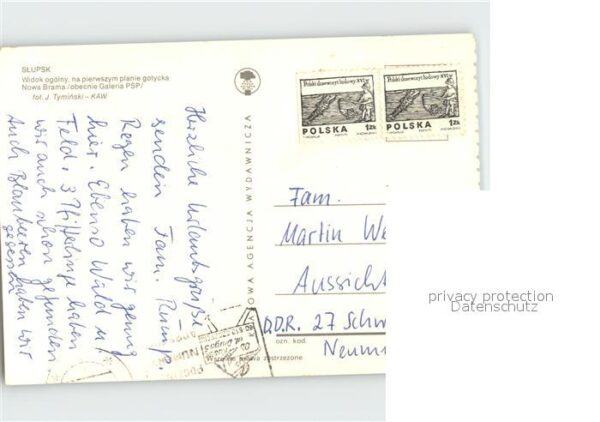 SŁUPSK
Widok ogólny, na pierwszym planie gotycka
Nowa Brama /obecnie Galeria PSP/
fot. J. Tymiński – KAW
Herzliche Urlaubsgrüße
senden Fam.
Regen haben wir genug
hier. Ebenso Wald u.
Feld. 3 Pfifferlinge haben
wir auch schon gefunden
Auch Blaubeeren
gegessen haben wir
KRAJOWA AGENCJA WYDAWNICZA
Polski drzeworyt ludowy XVI w.
POLSKA 1 ZŁ
Polski drzeworyt ludowy XVI w.
POLSKA 1 ZŁ
Fam.
Martin We
Aussicht
DDR. 27 Schw
ozn. kod.
Neum
zastrzeżone
privacy protection
Datenschutz